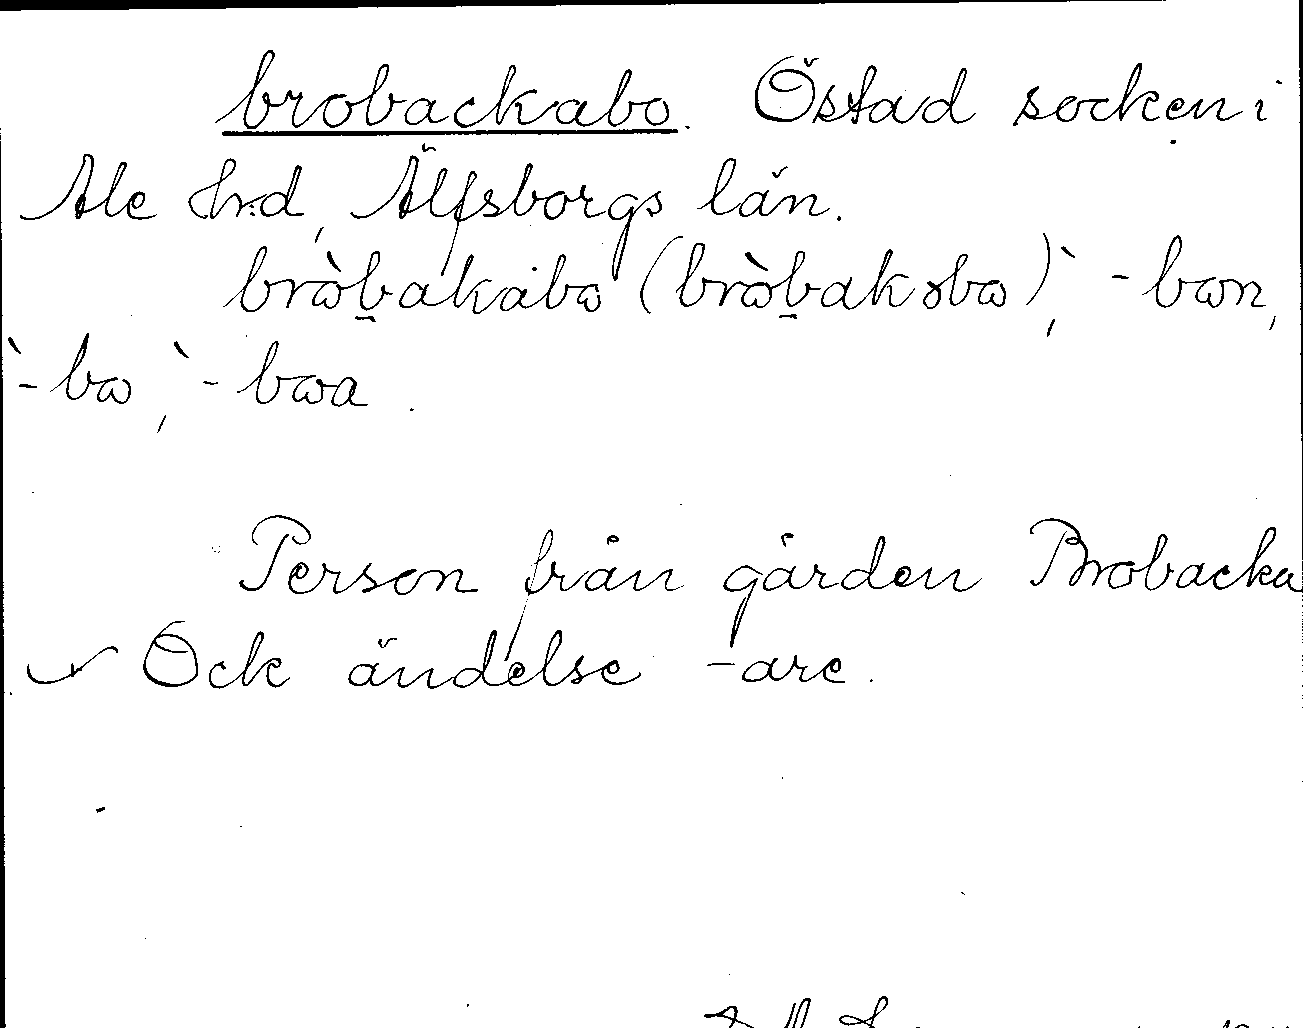 brobackabo. Östad socken i
Ale Hrd, Älfsborgs län.
brὼb̠akabω (brὼb̠akəbω), `-bωn,
`-bω, `-bωa.
Person från gården Brobacka
Ock ändelse -are.